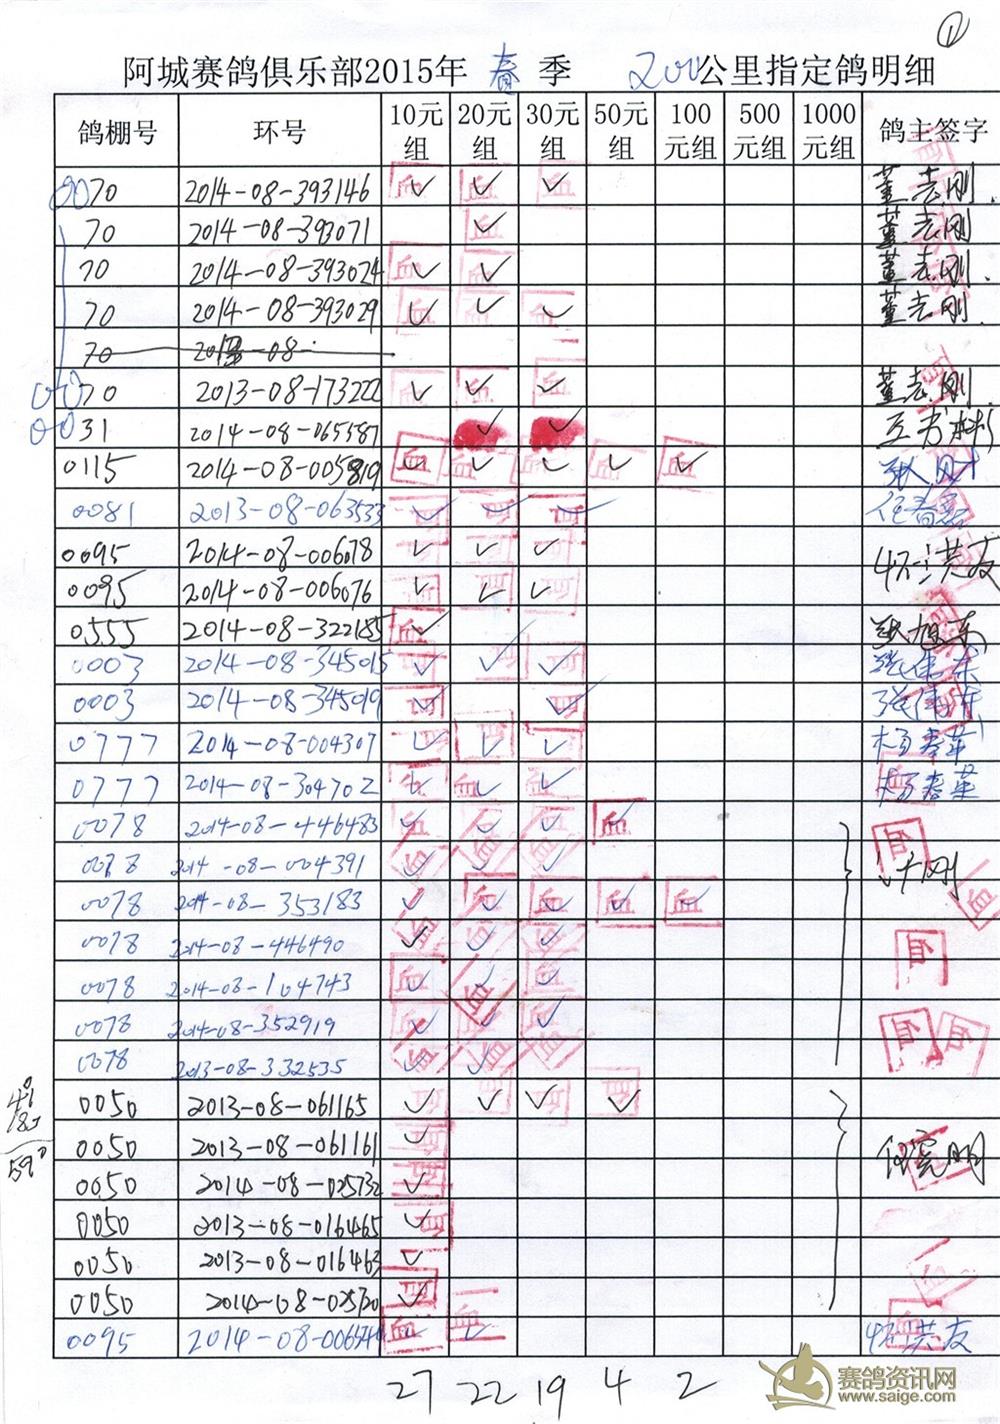 ①
阿城赛鸽俱乐部2015年 春 季 200公里指定鸽明细
鸽棚号 环号 10元组 20元组 30元组 50元组 100元组 500元组 1000元组 鸽主签字
0070 2014-08-393146 ✓ ✓ ✓ 董志刚
70 2014-08-393071 ✓ 董志刚
70 2014-08-393024 ✓ ✓ 董志刚
70 2014-08-393029 ✓ ✓ ✓ 董志刚
70
0070 2013-08-173222 ✓ ✓ ✓ 董志刚
0031 2014-08-065387 ✓ ✓
0115 2014-08-005819 ✓ ✓ ✓ ✓ ✓
0081 2013-08-063533 ✓ ✓ ✓
0095 2014-08-006078 ✓ ✓ ✓
0095 2014-08-006076 ✓ ✓ ✓
0555 2014-08-322185 ✓ 张旭东
0003 2014-08-345015 ✓ ✓ ✓ 张伟东
0003 2014-08-345019 ✓ ✓ 张伟东
0777 2014-08-004307 ✓ ✓ ✓ 杨春华
0777 2014-08-304702 ✓ ✓ ✓
0078 2014-08-446483 ✓ ✓ ✓ ✓
0078 2014-08-004391 ✓ ✓ ✓
0078 2014-08-353183 ✓ ✓ ✓ ✓ ✓
0078 2014-08-446490 ✓ ✓ ✓
0078 2014-08-104743 ✓ ✓ ✓
0078 2014-08-352919 ✓ ✓ ✓
0078 2013-08-332535 ✓ ✓
0050 2013-08-061165 ✓ ✓ ✓ ✓
0050 2013-08-061161 ✓
0050 2014-08-025732 ✓
0050 2013-08-016465 ✓
0050 2013-08-016463 ✓
0050 2014-08-025720 ✓
0095 ✓ ✓
27 22 19 4 2
赛鸽资讯网
www.saige.com